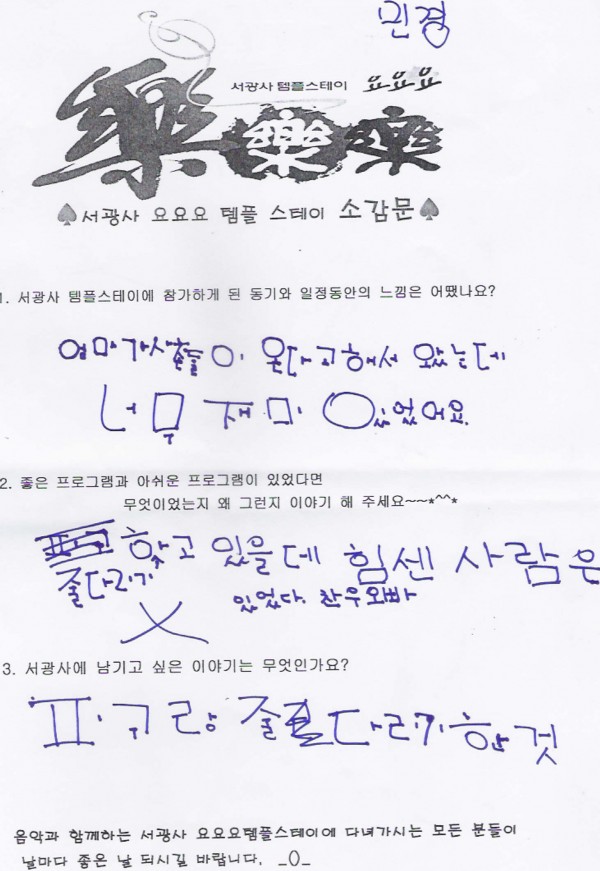 민경
서광사 템플스테이 요요요
樂 樂 樂
♠서광사 요요요 템플 스테이 소감문♠
1. 서광사 템플스테이에 참가하게 된 동기와 일정동안의 느낌은 어땠나요?
엄마가 사촌들이 온다고해서 왔는데
너무 재미 있었어요.
2. 좋은 프로그램과 아쉬운 프로그램이 있었다면
무엇이었는지 왜 그런지 이야기 해 주세요~~*^^*
하고 있을데 힘센 사람은
줄다리기
있었다. 찬우오빠
3. 서광사에 남기고 싶은 이야기는 무엇인가요?
피구랑 줄다리기한 것
음악과 함께하는 서광사 요요요템플스테이에 다녀가시는 모든 분들이
날마다 좋은 날 되시길 바랍니다. _()_